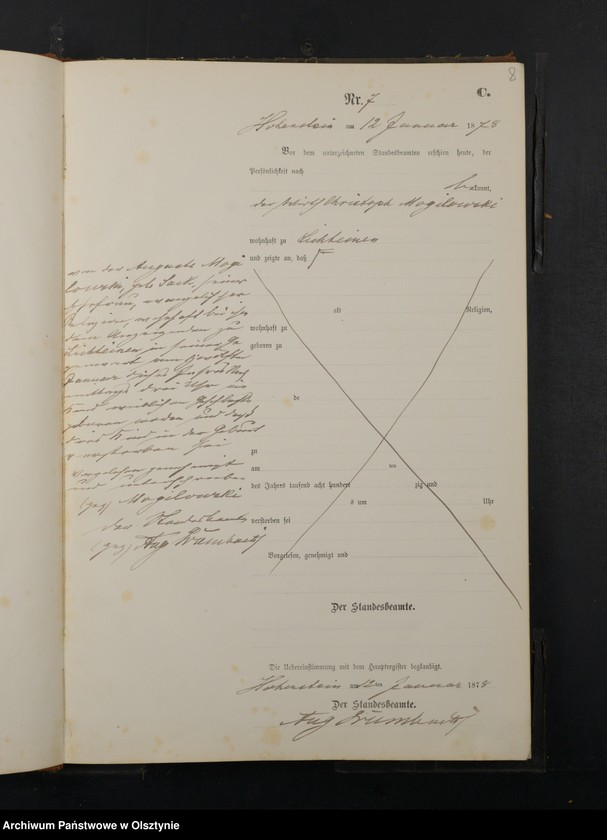 8
Nr. 7
C.
Hohenstein am 12 Januar 1878
Vor dem unterzeichneten Standesbeamten erschien heute, der
Persönlichkeit nach
bekannt,
der Christoph Mogilowski
wohnhaft zu Lichteinen
und zeigte an, daß
von der Auguste Mogi
lowski, geb. Sack, seiner
Ehefrau, evangelischer
Religion, wohnhaft bei ihm
dem Anzeigenden zu
Lichteinen in seiner Ge
genwart am zwölften
Januar dieses Jahres Nach
mittags drei Uhr ein
Kind weiblichen Geschlechts
geboren worden und daß
das Kind in der Geburt
verstorben sei
Vorgelesen genehmigt
und unterschrieben
(gez) Mogilowski
Der Standesbeamte
(gez) Aug
alt
Religion,
wohnhaft zu
geboren zu
de
zu
am
ten
des Jahrs tausend acht hundert
zig und
s um
Uhr
verstorben sei
Vorgelesen, genehmigt und
Der Standesbeamte.
Die Uebereinstimmung mit dem Hauptregister beglaubigt.
Hohenstein am 12ten Januar 1878
Der Standesbeamte.
Aug
Archiwum Państwowe w Olsztynie